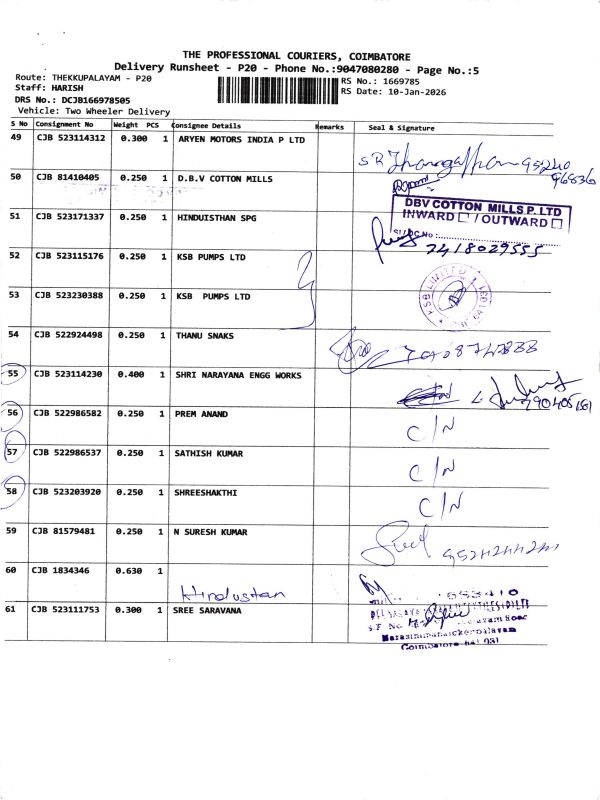 THE PROFESSIONAL COURIERS, COIMBATORE
Delivery Runsheet - P20 - Phone No.:9047080280 - Page No.:5
Route: THEKKUPALAYAM - P20
RS No.: 1669785
Staff: HARISH
RS Date: 10-Jan-2026
DRS No.: DCJB166978505
Vehicle: Two Wheeler Delivery
S No Consignment No Weight PCS Consignee Details Remarks Seal & Signature
49 CJB 523114312 0.300 1 ARYEN MOTORS INDIA P LTD
95240
96836
50 CJB 81410405 0.250 1 D.B.V COTTON MILLS
DBV COTTON MILLS P. LTD
INWARD / OUTWARD
51 CJB 523171337 0.250 1 HINDUISTHAN SPG
7418029555
52 CJB 523115176 0.250 1 KSB PUMPS LTD
KSB LIMITED
53 CJB 523230388 0.250 1 KSB PUMPS LTD
54 CJB 522924498 0.250 1 THANU SNAKS
55 CJB 523114230 0.400 1 SHRI NARAYANA ENGG WORKS
56 CJB 522986582 0.250 1 PREM ANAND C/N
57 CJB 522986537 0.250 1 SATHISH KUMAR C/N
58 CJB 523203920 0.250 1 SHREESHAKTHI C/N
59 CJB 81579481 0.250 1 N SURESH KUMAR
60 CJB 1834346 0.630 1
Hindustan
61 CJB 523111753 0.300 1 SREE SARAVANA
S.F No
Narasimmanaickenpalayam
Coimbatore 641 031